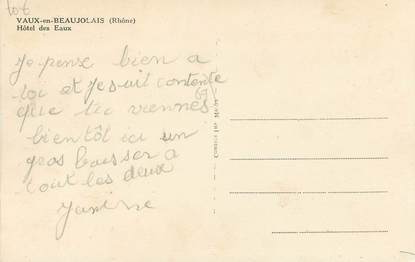 106
VAUX-en-BEAUJOLAIS (Rhône)
Hôtel des Eaux
Je pense bien a
toi et je suit contente
que tu viennes
69
bientôt ici un
gros baisser a
tout les deux
Janine